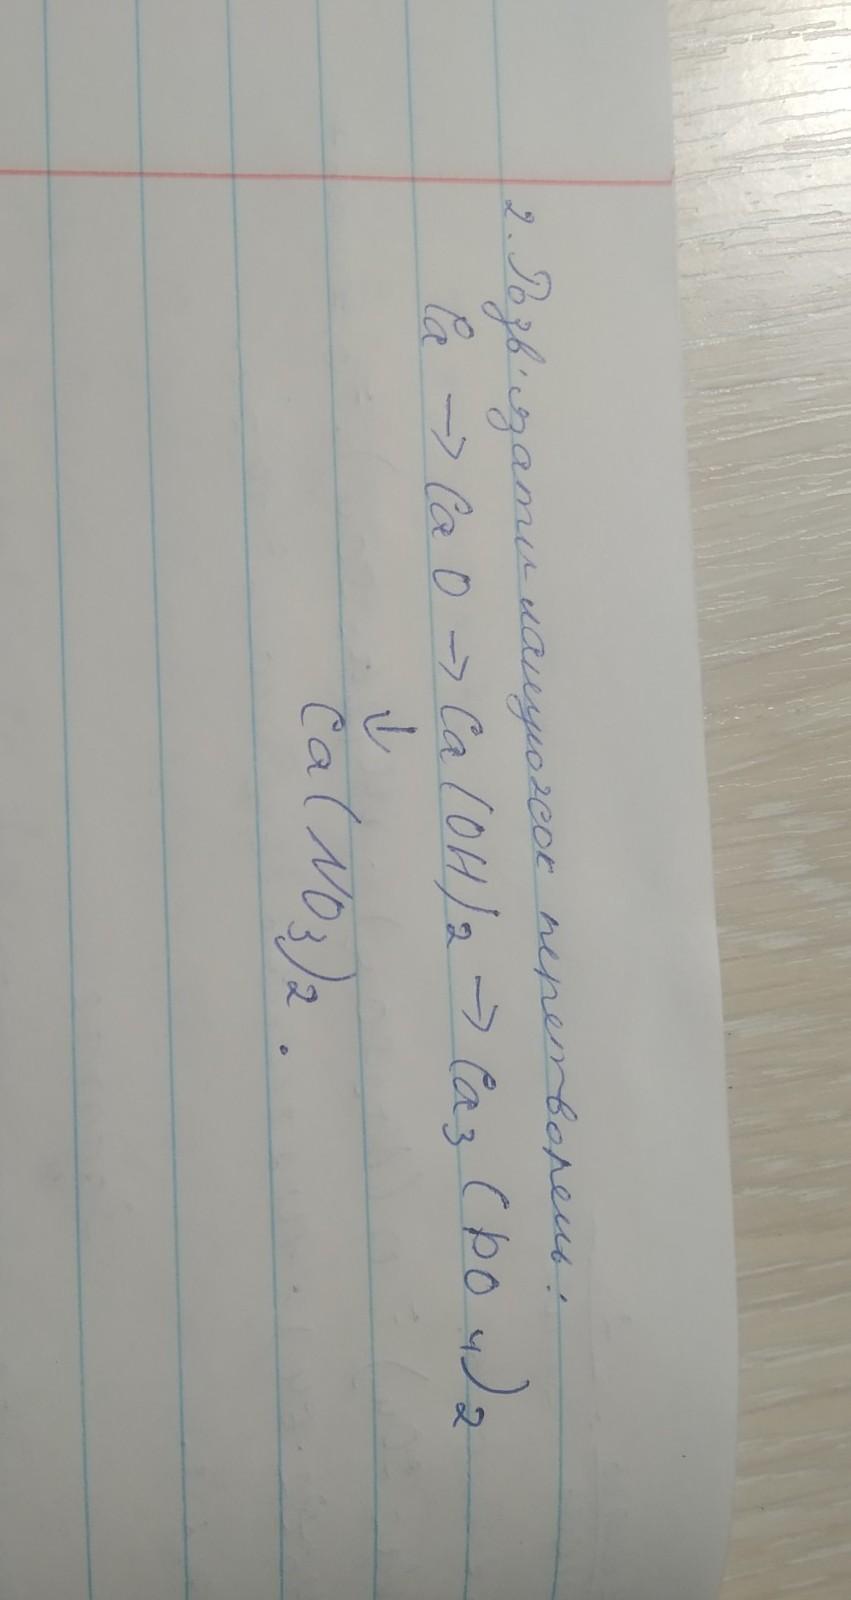 2. Розв'язати ланцюжок перетворень:
Ca → CaO → Ca(OH)2 → Ca3(PO4)2
↓
Ca(NO3)2.